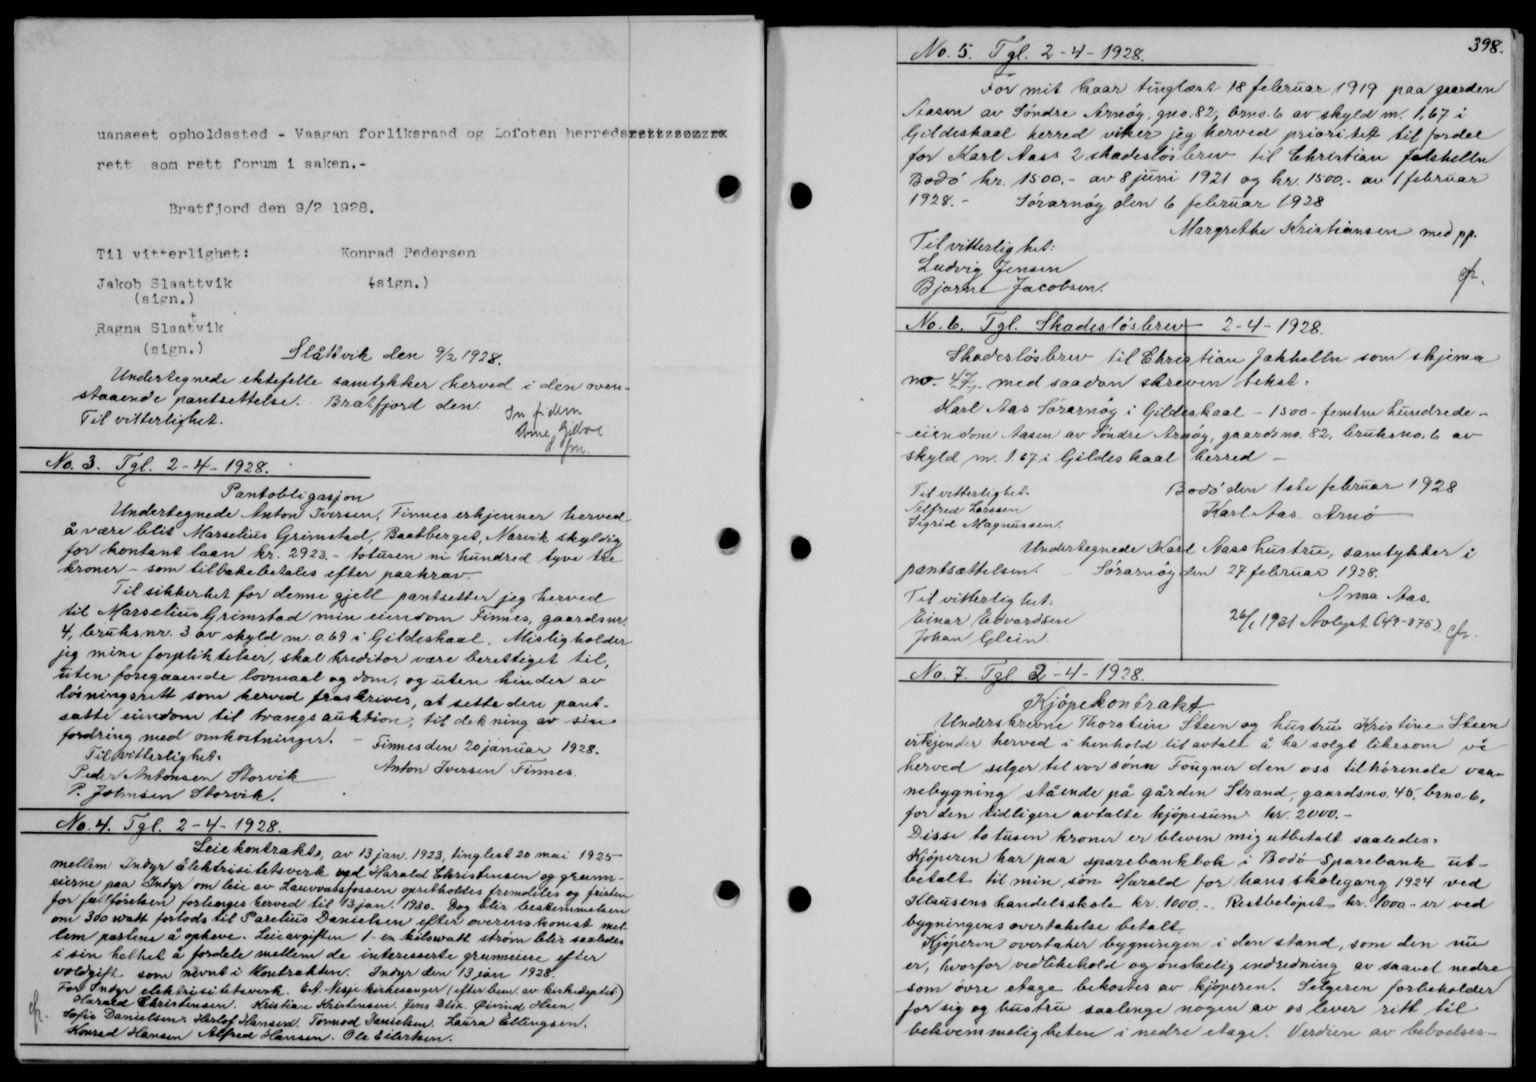 uanseet opholdssted - Vaagan forliksraad og Lofoten herreds
rett som rett forum i saken.-
Bratfjord den 9/2 1928.
Til vitterlighet: Konrad Pedersen
Jakob Slaattvik (sign.)
(sign.)
Ragna Slaattvik
(sign.)
Slåttvik den 9/2 1928.
Undertegnede ektefelle samtykker herved i den oven-
staaende pantsettelse. Bratfjord den
Til vitterlighet. In fidem
Arne
fm.
No. 3. Tgl. 2-4-1928.
Pantobligasjon
Undertegnede Anton Iversen, Finnes erkjenner herved
å være blit Marselius Grimstad, Baatberget, Narvik skyldig
for kontant laan kr. 2923.- totusen ni hundred tyve tre
kroner - som tilbakebetales efter paakrav.
Til sikkerhet for denne gjeld pantsetter jeg herved
til Marselius Grimstad min eiendom Finnes, gaardsnr.
4, bruksnr. 3 av skyld m. 0.69 i Gildeskaal. Misligholder
jeg mine forpliktelser, skal kreditor være berettiget til,
uten foregaaende lovmaal og dom, og uten hinder av
løsningsrett som herved fraskrives, at sette den pant-
satte eiendom til tvangsauktion, til dekning av sin
fordring med omkostninger. - Finnes den 20 januar 1928.
Til vitterlighet: Anton Iversen Finnes.
Peder Antonsen Storvik
P. Johnsen Storvik.
No. 4. Tgl. 2-4-1928.
Leiekontrakts, av 13 jan. 1923, tinglest 20 mai 1925
mellem Indyr Elektrisitetsverk ved Harald Christensen og grunn-
eierne paa Indyr om leie av Lauvvassfossen opretholdes fremdeles og fristen
for forlenges herved til 13 jan. 1930. Dog blir bestemmelsen
om 300 watt forlods til Parelius Danielsen efter overenskomst mel-
lem partene å opheve. Leieavgiften 1- en kilowatt strøm blir saaledes
i sin helhet å fordele mellem de interesserte grunneiere efter
voldgift som nevnt i kontrakten. Indyr den 13 jan 1928.
For Indyr elektrisitetsverk. Edt. Nesje kirkesanger (efter bem. av kirkedeptet)
Harald Christensen. Kristian Kristensen. Jens Blix. Øivind Hein.
Sofie Danielsen. Herlof Hansen. Tormod Danielsen. Laura Ellingsen.
Konrad Hansen Alfred Hansen. Ole Eilertsen.
398.
No. 5. Tgl. 2-4-1928.
For mit laan tinglæst 18 februar 1919 paa gaarden
Aasen av Søndre Arnøy, gno. 82, brno. 6 av skyld m. 1,67 i
Gildeskaal herred viker jeg herved prioritet til fordel
for Karl Aas 2 skadesløsbrev til Christian Jakhelln
Bodø kr. 1500.- av 8 juni 1921 og kr. 1500.- av 1 februar
1928.- Sørarnøy den 6 februar 1928
Margrethe Kristiansen med pp.
Til vitterlighet:
Ludvig Jensen
Bjarne Jacobsen.
No. 6. Tgl. Skadesløsbrev 2-4-1928.
Skadesløsbrev til Christian Jakhelln som skjema
no. 47/1. med saadan skreven tekst.
Karl Aas Sørarnøy i Gildeskaal - 1500- femten hundrede -
- eiendom Aasen av Søndre Arnøy, gaardsno. 82, bruksno. 6 av
skyld m. 1.67 i Gildeskaal herred -
Til vitterlighet. Bodø den 1ste februar 1928
Alfred Larssen Karl Aas Arnø
Sigrid Magnussen.
Undertegnede Karl Aass hustru, samtykker i
pantsættelsen. - Sørarnøy den 27 februar 1928.
Til vitterlighet: Anna Aas.
Einar Edvardsen 26/1 1931 Avlyst (49-375)
Johan Glein.
No. 7. Tgl 2-4-1928.
Kjøpekontrakt
Underskrevne Thorstein Steen og hustru Kristine Steen
erkjender herved i henhold til avtale å ha solgt likesom vi
herved selger til vor sønn Fougner den oss tilhørende vaa-
nebygning stående på gården Strand, gaardsno. 45, brno. 6,
for den tidligere avtalte kjøpesum kr. 2000.-
Disse totusen kroner er bleven mig utbetalt saaledes:
Kjøperen har paa sparebankbok i Bodø Sparebank ut-
betalt til min søn Harald for hans skolegang 1924 ved
Klausens handelsskole kr. 1000.- Restbeløpet kr. 1000.- er ved
bygningens overtakelse betalt.
Kjøperen overtaker bygningen i den stand, som den nu
er, hvorfor vedlikehold og ønskelig indredning av saavel nedre
som øvre etage bekostes av kjøperen. Selgeren forbeholder
for sig og hustru saalenge nogen av os lever rett til
bekvemmeligheten i nedre etage. Verdien av beboelses-